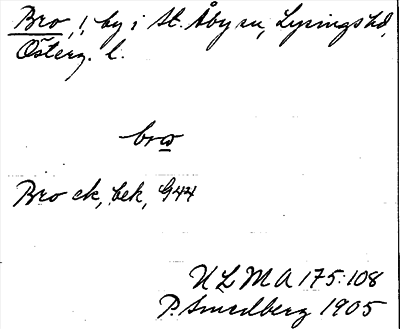 Bro, !, by i St. Åby sn, Lysings hd,
Österg. l.
bro
Bro ek, bek, G44
ULMA 175:108
P. Smedberg 1905